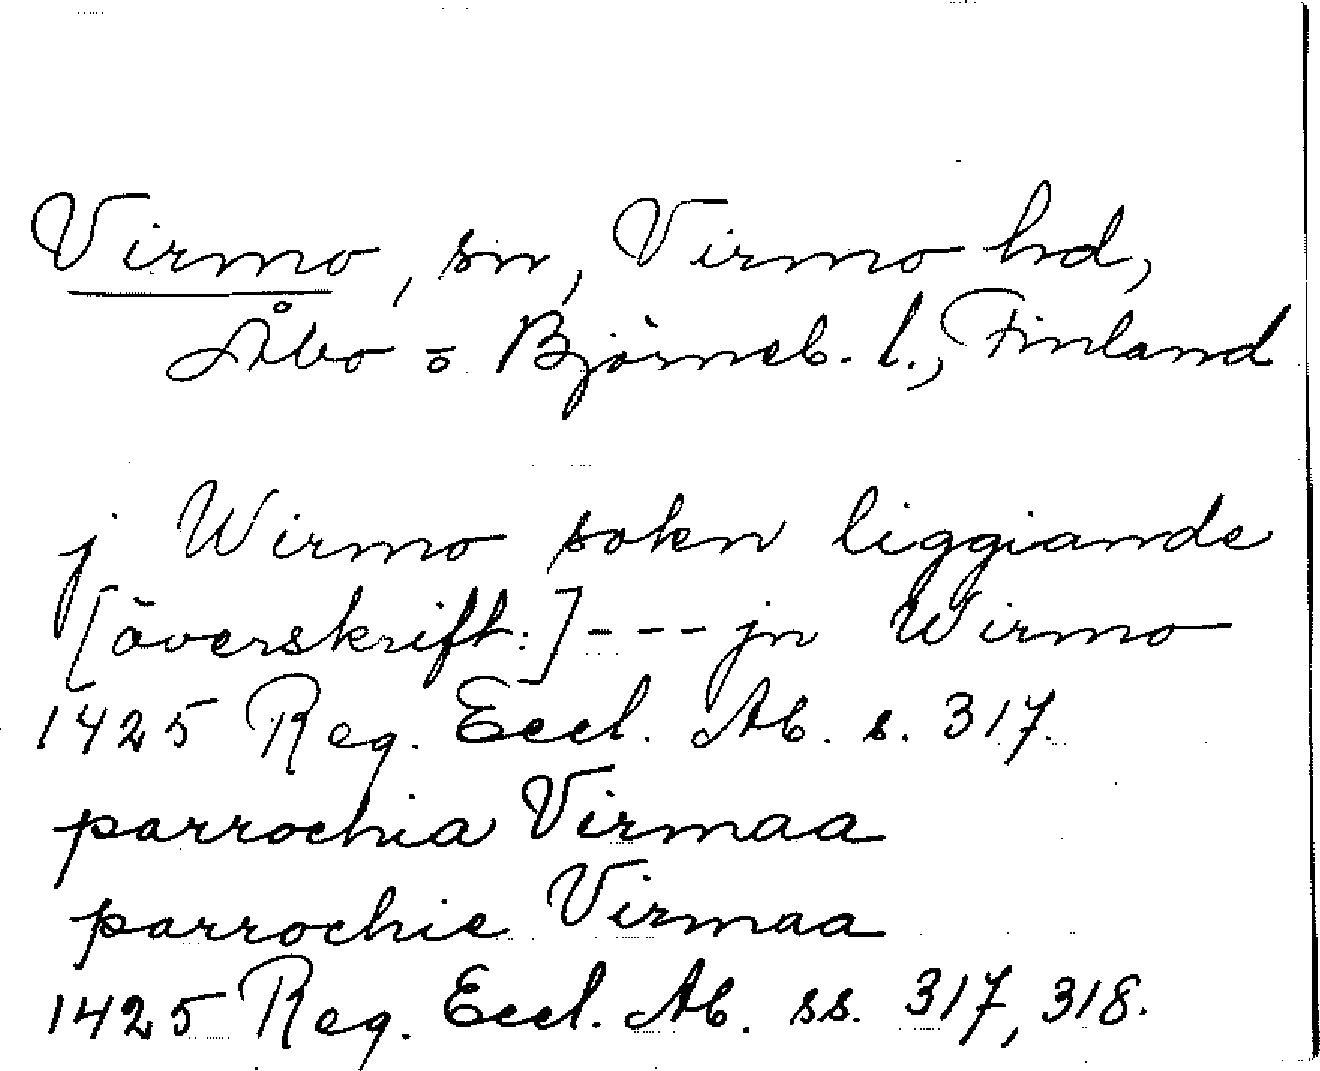 Virmo, sn, Virmo hd,
Åbo o Björneb. l., Finland
j Wirmo sokn liggiande
[överskrift:] - - - jn Wirmo
1425 Reg. Eccl. Ab. s. 317.
parrochia Virmaa
parrochie Virmaa
1425 Reg. Eccl. Ab. ss. 317, 318.